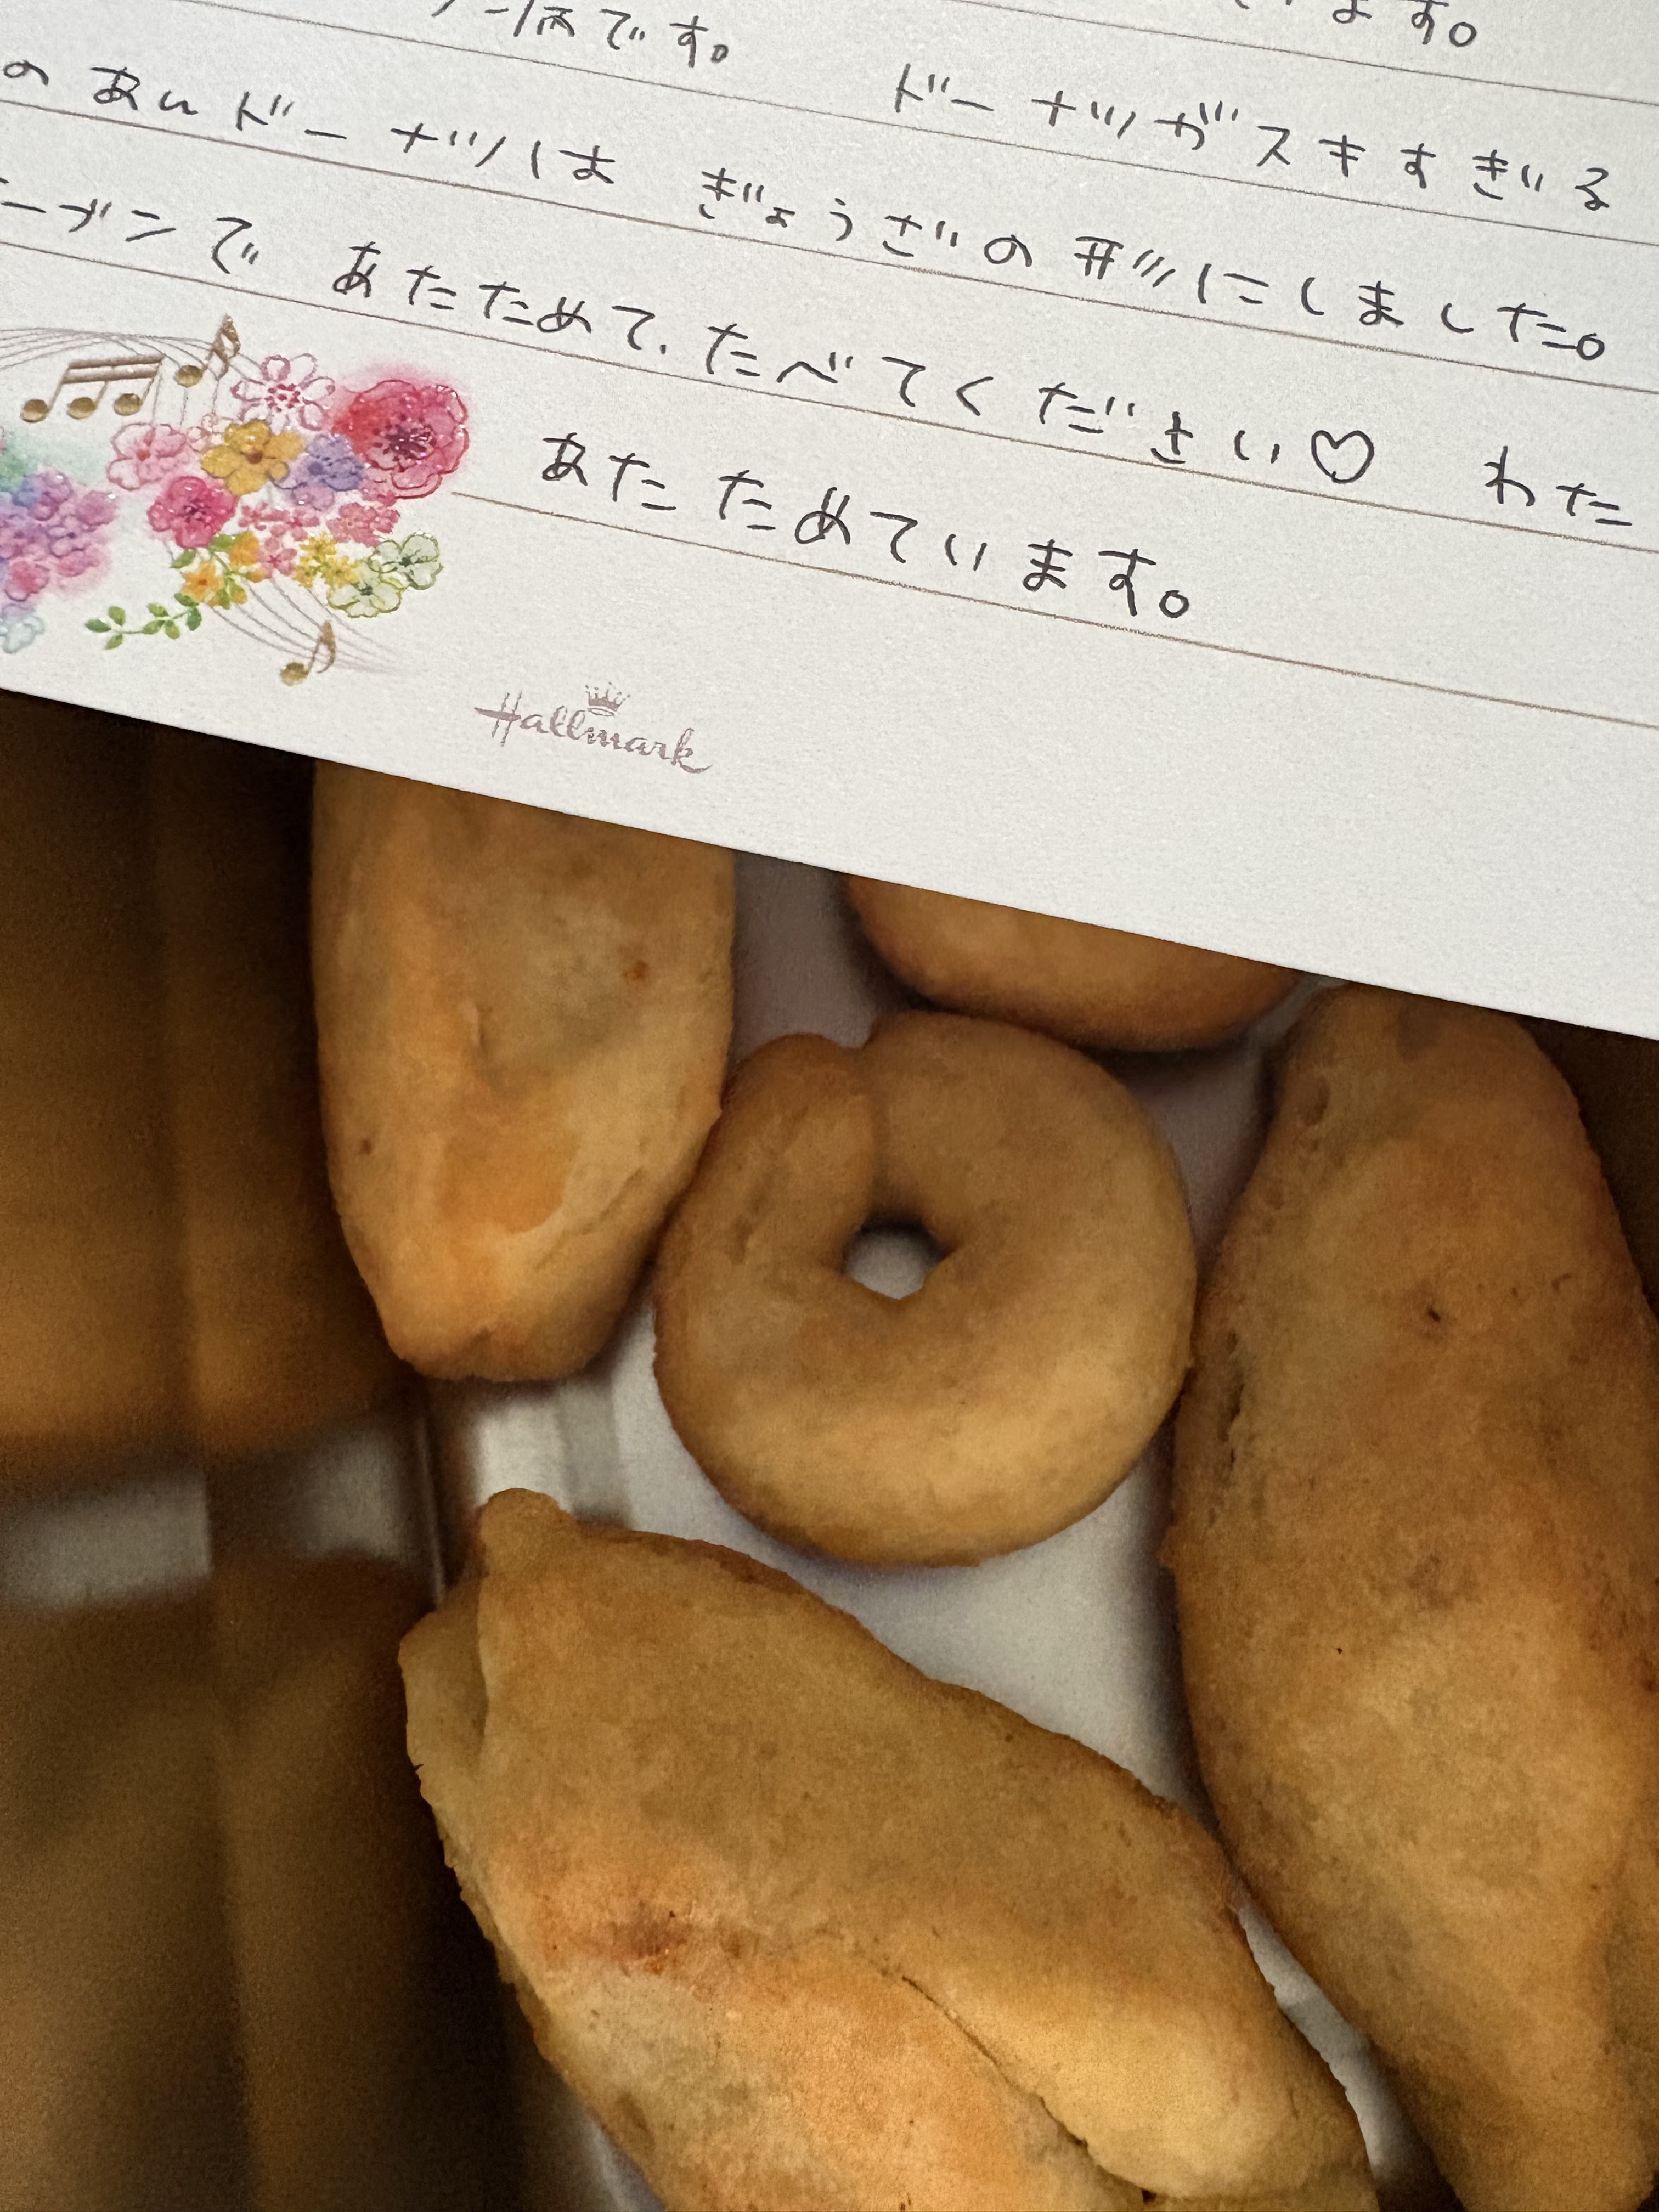 ます。
病です。 ドーナツガスキすぎる
のあんドーナツは ぎょうざの形にしました。
ーブンで あたためて、たべてください♡ わた
あたためています。
Hallmark